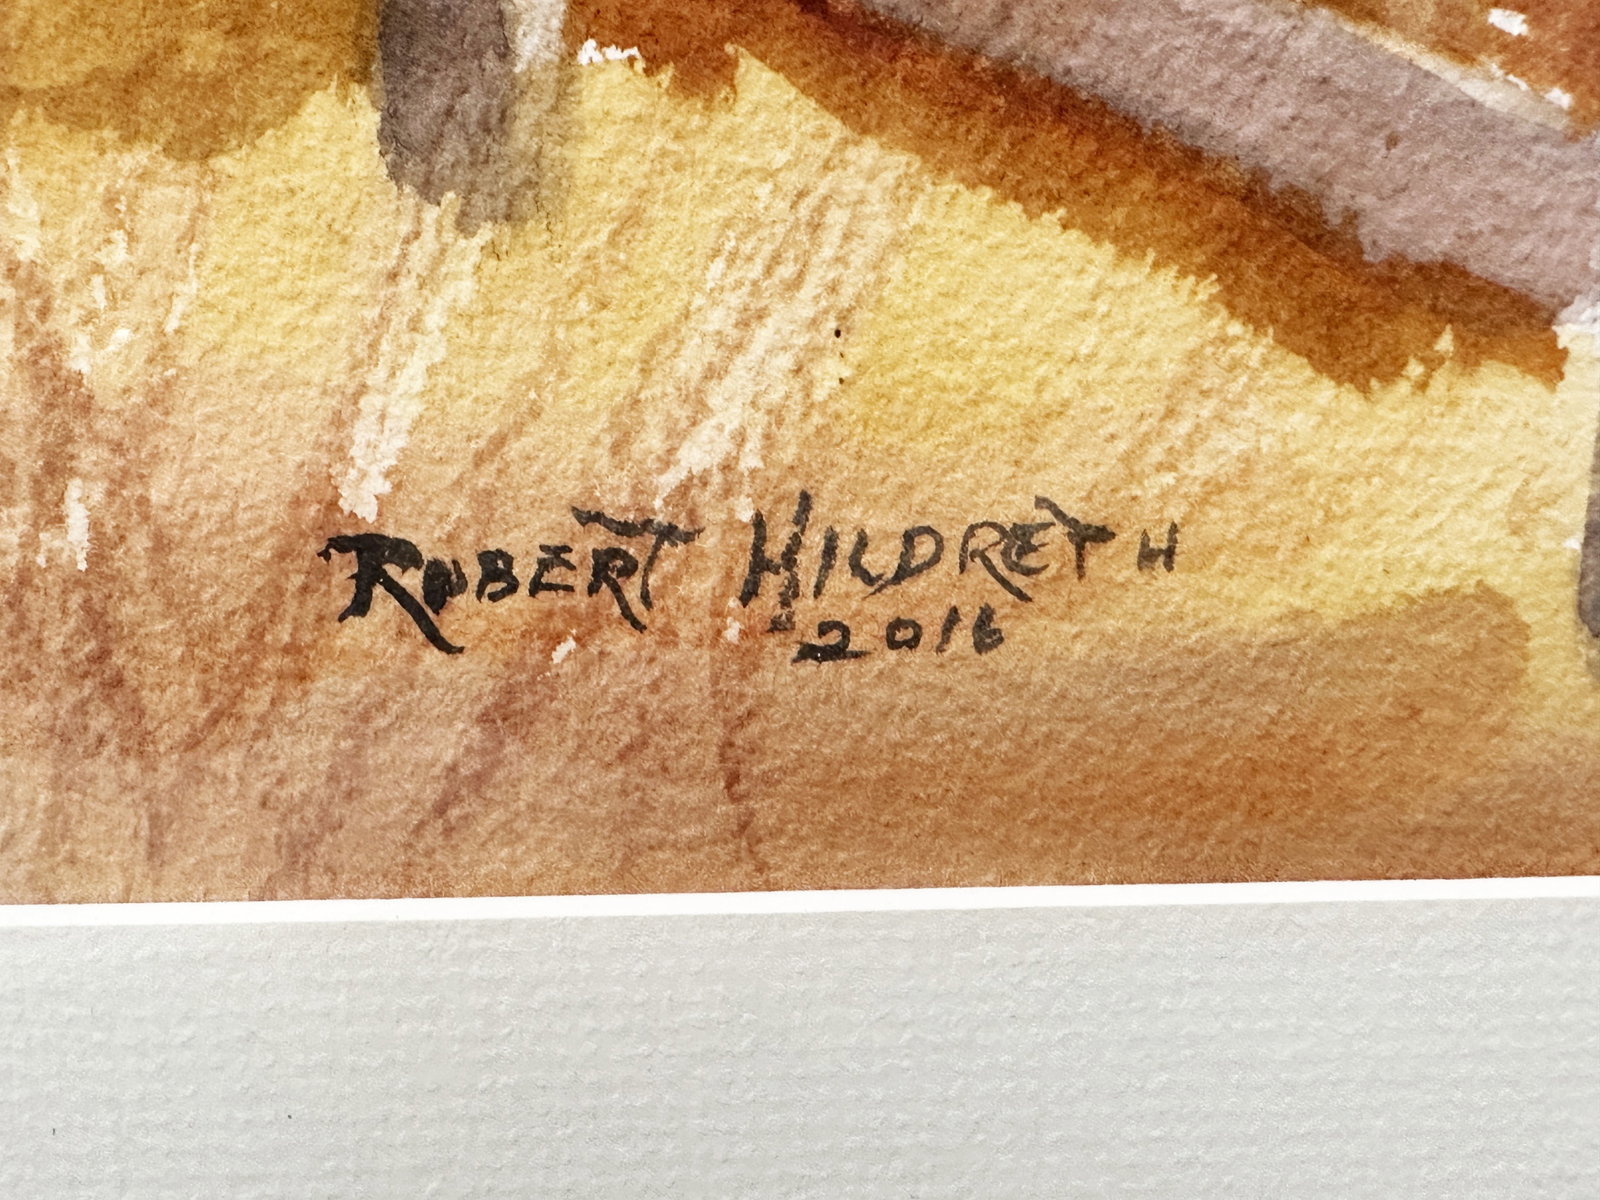 ROBERT HILDRETH
2016